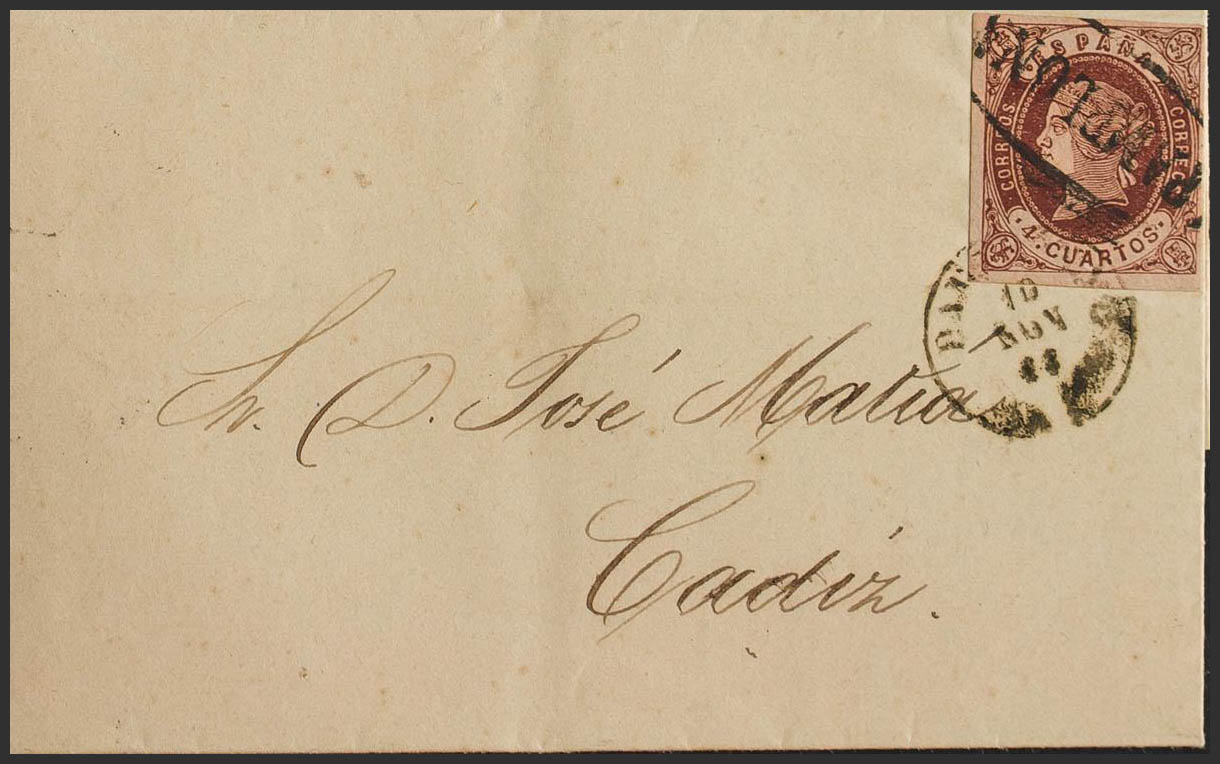 ESPAÑA
CORREOS.
CORREOS
4. CUARTOS.
10
NOV
Sr. D. José Matia
Cadiz.